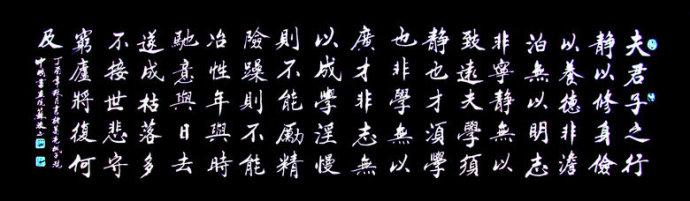 夫君子之行
静以修身儉
以養德非澹
泊無以明志
非寧静無以
致遠夫學須
静也才須學
也非學無以
廣才非志無
以成學淫慢
則不能勵精
險躁則不能
冶性年與時
馳意與日去
遂成枯落多
不接世悲守
窮廬將復何
及